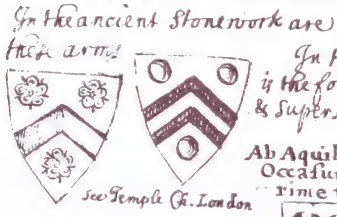 In the ancient Stonework are
these arms
In t
is the fo
& Supers
Ab Aquil
Occasu
rime
see Temple Ch. London